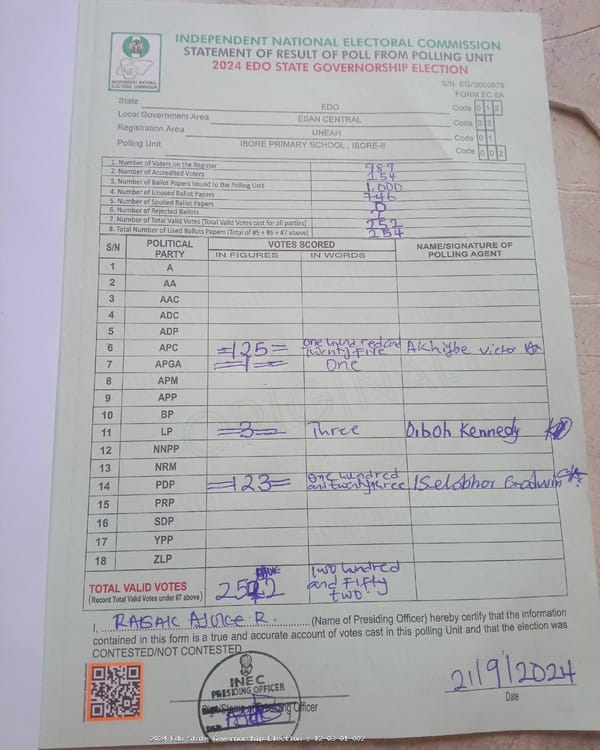 INDEPENDENT NATIONAL ELECTORAL COMMISSION
STATEMENT OF RESULT OF POLL FROM POLLING UNIT
2024 EDO STATE GOVERNORSHIP ELECTION
INDEPENDENT NATIONAL
ELECTORAL COMMISSION
S/N: EG/0000679
FORM EC 8A
State EDO Code 0 1 2
Local Government Area ESAN CENTRAL Code 0 3
Registration Area UNEAH Code 0 1
Polling Unit IBORE PRIMARY SCHOOL , IBORE-II Code 0 0 2
1. Number of Voters on the Register 989
2. Number of Accredited Voters 254
3. Number of Ballot Papers Issued to the Polling Unit 1,000
4. Number of Unused Ballot Papers 746
5. Number of Spoiled Ballot Papers
6. Number of Rejected Ballots
7. Number of Total Valid Votes (Total Valid Votes cast for all parties) 252
8. Total Number of Used Ballots Papers (Total of #5 + #6 + #7 above) 254
S/N POLITICAL PARTY VOTES SCORED NAME/SIGNATURE OF POLLING AGENT
IN FIGURES IN WORDS
1 A
2 AA
3 AAC
4 ADC
5 ADP
6 APC =125= one hundred and twenty five Akhigbe Victor
7 APGA =1= one
8 APM
9 APP
10 BP
11 LP =3= Three Diboh Kennedy
12 NNPP
13 NRM
14 PDP =123= one hundred and twenty three Iselobhor Godwin
15 PRP
16 SDP
17 YPP
18 ZLP
TOTAL VALID VOTES 252 Two hundred and Fifty two
(Record Total Valid Votes under #7 above)
I, ... R. (Name of Presiding Officer) hereby certify that the information
contained in this form is a true and accurate account of votes cast in this polling Unit and that the election was
CONTESTED/NOT CONTESTED
INEC
PRESIDING OFFICER
Sign/Stamp of Presiding Officer
21/9/2024
Date
2024 Edo State Governorship Election : 12-03-01-002